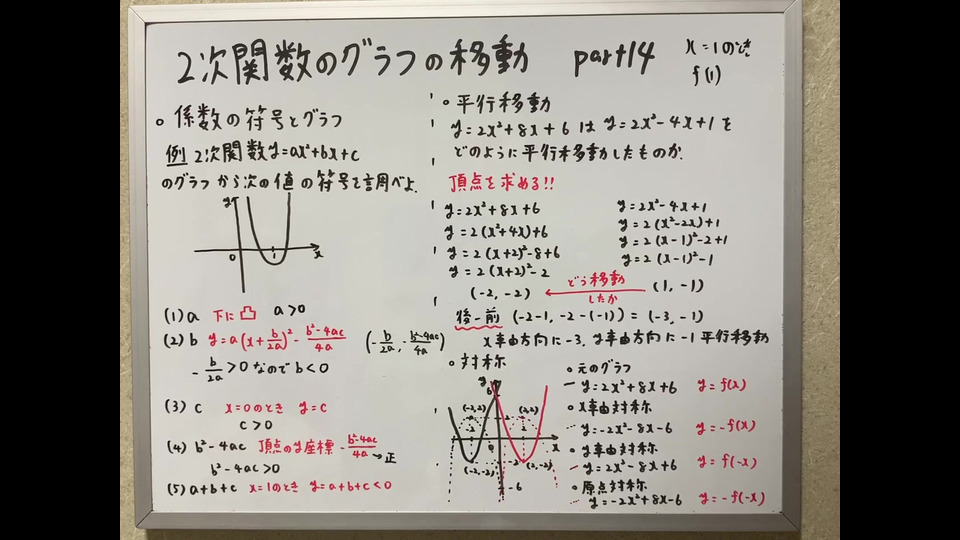 2次関数のグラフの移動 part14
x=1のとき
f(1)
○係数の符号とグラフ
例 2次関数y=ax²+bx+c
のグラフから次の値の符号を調べよ.
y
0 1 x
(1) a 下に凸 a>0
(2) b y=a(x+b/2a)²-b²-4ac/4a (-b/2a, -b²-4ac/4a)
-b/2a>0なのでb<0
(3) c x=0のとき y=c
c>0
(4) b²-4ac 頂点のy座標 -b²-4ac/4a→正
b²-4ac>0
(5) a+b+c x=1のとき y=a+b+c<0
○平行移動
y=2x²+8x+6は y=2x²-4x+1を
どのように平行移動したものか.
頂点を求める!!
y=2x²+8x+6
y=2(x²+4x)+6
y=2(x+2)²-8+6
y=2(x+2)²-2
(-2,-2)
y=2x²-4x+1
y=2(x²-2x)+1
y=2(x-1)²-2+1
y=2(x-1)²-1
(1,-1)
どう移動
したか
後-前 (-2-1,-2-(-1))=(-3,-1)
x軸方向に-3,y軸方向に-1平行移動
○対称
y
6
(-2,2) (2,2)
0 x
(-2,-2) (2,-2)
-6
○元のグラフ
y=2x²+8x+6 y=f(x)
○x軸対称
y=-2x²-8x-6 y=-f(x)
○y軸対称
y=2x²-8x+6 y=f(-x)
○原点対称
y=-2x²+8x-6 y=-f(-x)